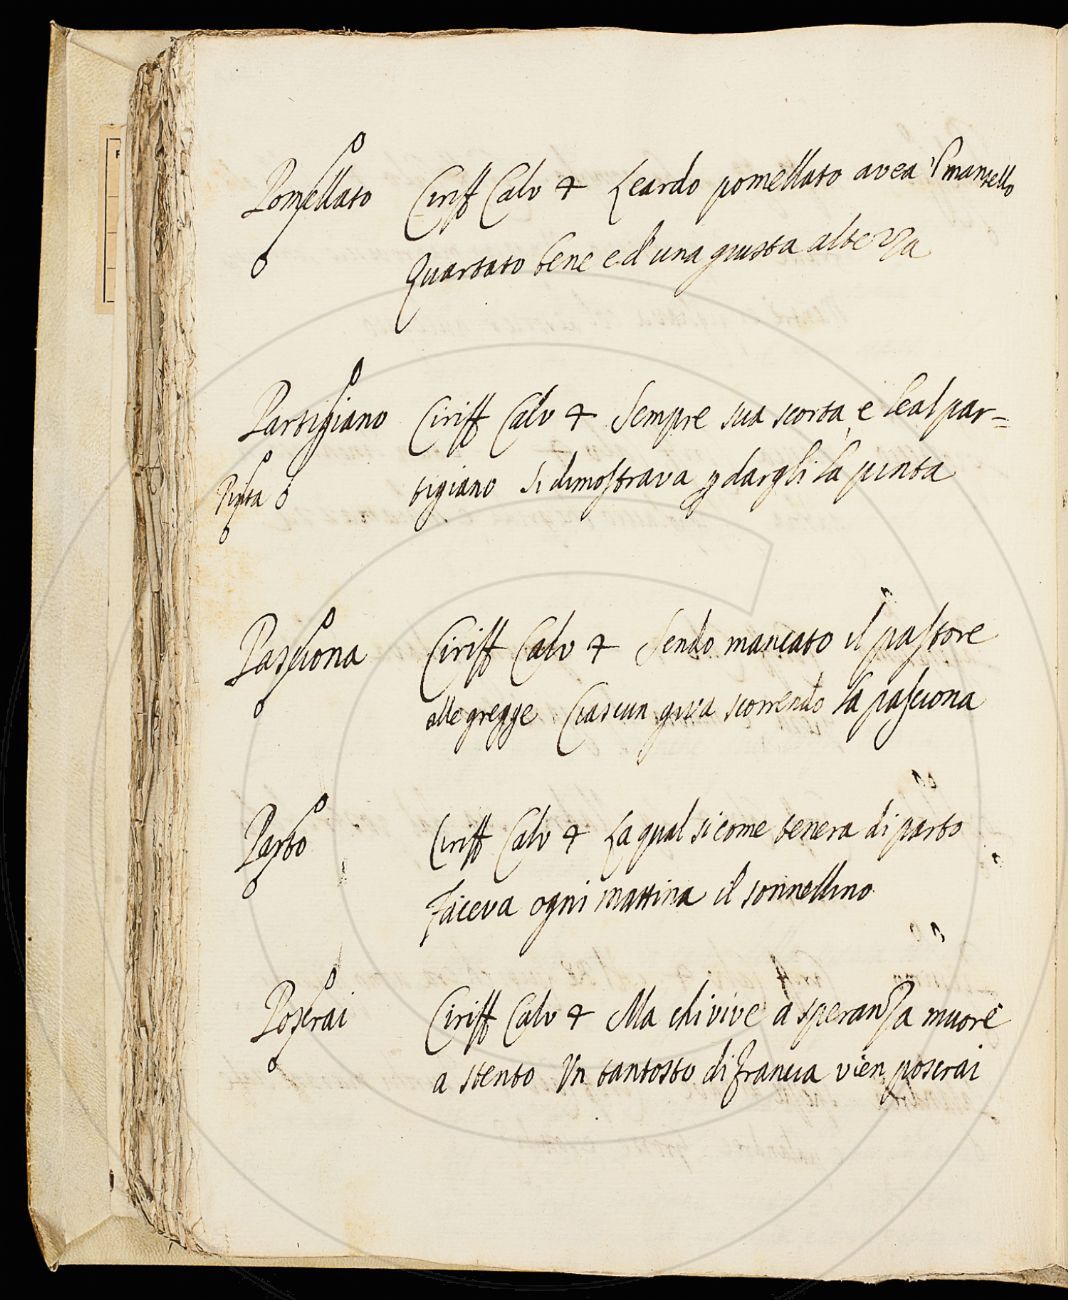 Pomellato Ciriff Calv 4 Leardo pomellato avea 'l mantello
Quartato bene e d'una giusta altezza
Partigiano Ciriff Calv 4 Sempre sua scorta, e leal par=
Pinta tigiano si dimostrava p dargli la pinta
Pasciona Ciriff Calv 4 Sendo mancato il pastore
alle gregge Ciascun giva scorrendo la pasciona
Parto Ciriff Calv 4 La qual sicome tenera di parto
Faceva ogni mattina il sonnellino
Poserai Ciriff Calv 4 Ma chi vive a speranza muore
a stento Un tantosto di francia vien poserai